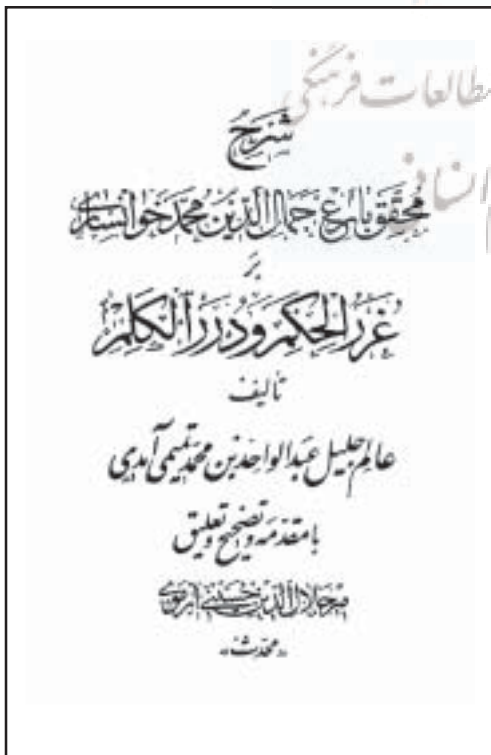 مطالعات فرهنگی
شرح
محقق بارع جمال الدین محمد خوانساری
بر
غرر الحکم و درر الکلم
تألیف
عالم جلیل عبدالواحد بن محمد تمیمی آمدی
با مقدمه و تصحیح و تعلیق
میر جلال الدین حسینی ارموی
«محدث»